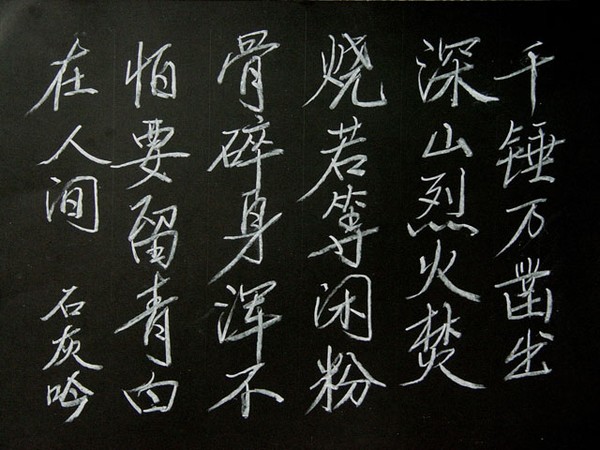 千锤万凿出
深山烈火焚
烧若等闲粉
骨碎身浑不
怕要留青白
在人间
石灰吟